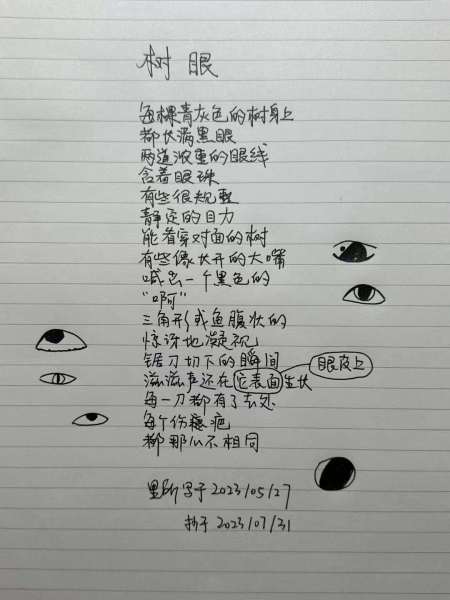 树眼
每棵青灰色的树身上
都长满黑眼
两道浓重的眼线
含着眼珠
有些很规整
静定的目力
能看穿对面的树
有些像大开的大嘴
喊出一个黑色的
“啊”
三角形或鱼腹状的
惊讶地凝视
锯刀切下的瞬间
滋滋声还在它表面生长
眼皮上
每一刀都有了去处
每个伤疤
都那么不相同
里所写于2023/05/27
抄于2023/07/31